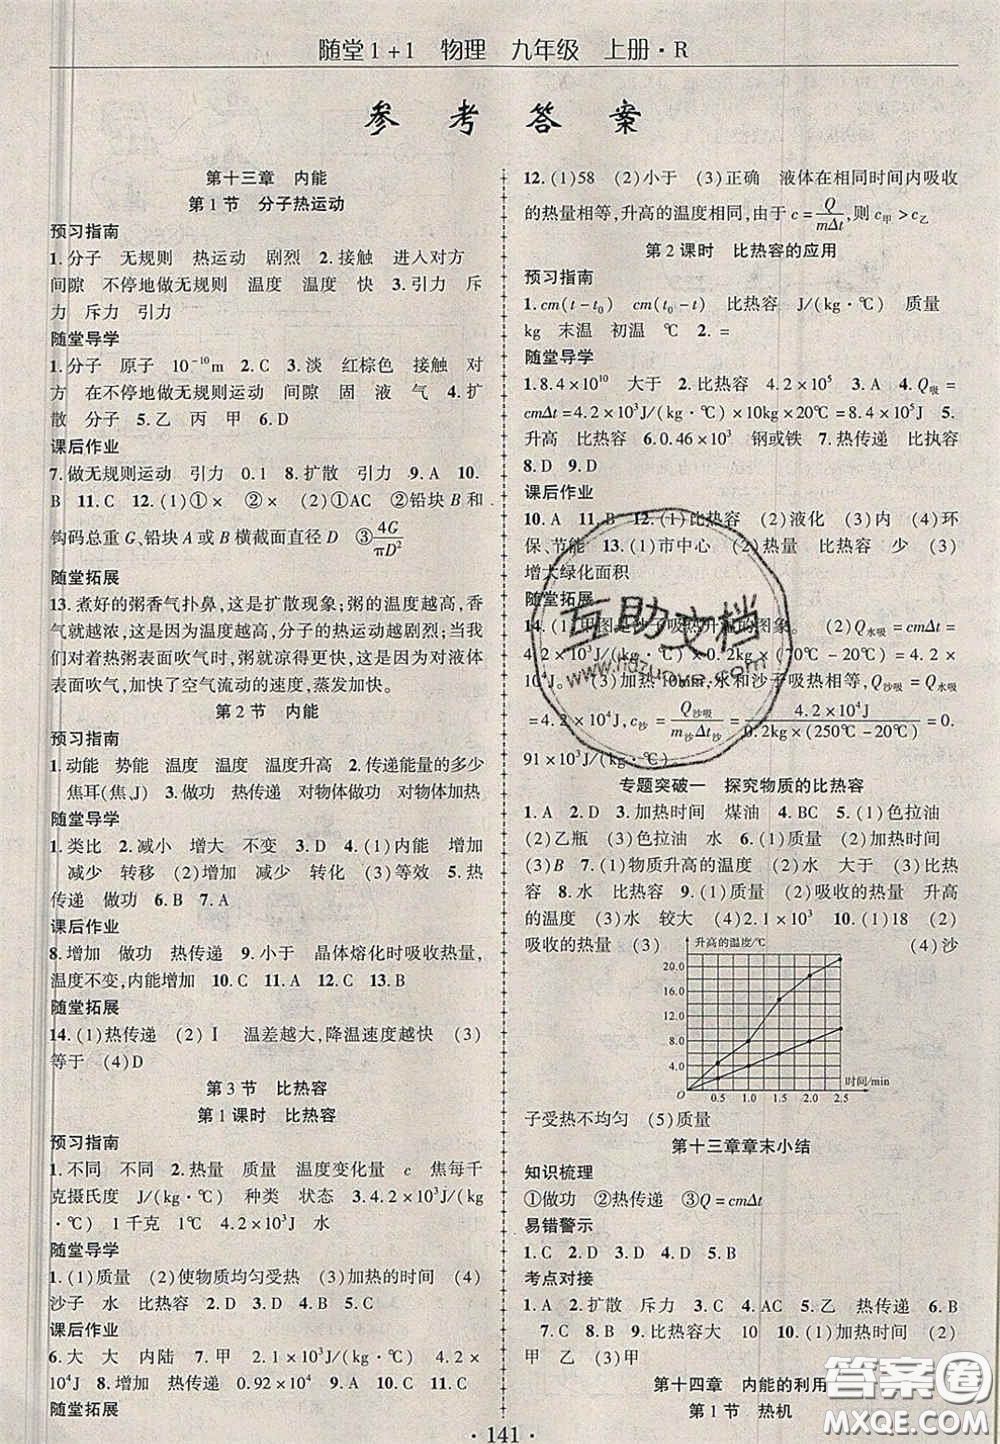 随堂1+1 物理 九年级 上册·R
参考答案
第十三章 内能
第1节 分子热运动
预习指南
1.分子 无规则 热运动 剧烈 2.接触 进入对方
间隙 不停地做无规则运动 温度 温度 快 3.引力 斥
力 斥力 引力
随堂导学
1.分子 原子 10⁻¹⁰m 2.C 3.淡 红棕色 接触 对
方 在不停地做无规则运动 间隙 固 液 气 4.扩
散 分子 5.乙 丙 甲 6.D
课后作业
7.做无规则运动 引力 0.1 8.扩散 引力 9.A 10.
B 11.C 12.(1)①× ②× (2)①AC ②铅块B和
钩码总重G、铅块A或B横截面直径D ③4G/πD²
随堂拓展
13.煮好的粥香气扑鼻,这是扩散现象;粥的温度越高,香
气就越浓,这是因为温度越高,分子的热运动越剧烈;当我
们对着热粥表面吹气时,粥会凉得更快,这是因为对液体
表面吹气,加快了空气流动的速度,蒸发加快。
第2节 内能
预习指南
1.动能 势能 温度 温度 温度升高 2.传递能量的多少
焦耳(焦、J) 3.做功 热传递 对物体做功 对物体加热
随堂导学
1.类比 2.减小 增大 不变 3.D 4.(1)内能 增加
减少 转移 (2)增加 减少 转化 (3)等效 5.热
传递 做功 6.B 7.A
课后作业
8.增加 做功 热传递 9.小于 晶体熔化时吸收热量,
温度不变,内能增加 10.C 11.A 12.C 13.B
随堂拓展
14.(1)热传递 (2)Ⅰ 温差越大,降温速度越快 (3)
等于 (4)D
第3节 比热容
第1课时 比热容
预习指南
1.不同 不同 2.热量 质量 温度变化量 c 焦每千
克摄氏度 J/(kg·℃) 种类 状态 3.4.2×10³J/(kg
·℃) 1千克 1℃ 4.2×10³J 水
随堂导学
1.(1)质量 (2)使物质均匀受热 (3)加热的时间 (4)
沙子 水 比热容 2.D 3.D 4.B 5.C
课后作业
6.大 大 内陆 7.甲 2.1×10³J/(kg·℃) 4.2×
10⁴J 8.热传递 0.92×10⁴ 9.D 10.B 11.C
随堂拓展
12.(1)58 (2)小于 (3)正确 液体在相同时间内吸收
的热量相等,升高的温度相同,由于c=Q/mΔt,则c甲>c乙
第2课时 比热容的应用
预习指南
1.cm(t-t₀) cm(t₀-t) 比热容 J/(kg·℃) 质量
kg 末温 初温 ℃ 2.=
随堂导学
1.8.4×10¹⁰ 大于 2.比热容 4.2×10⁵ 3.A 4.Q吸=
cmΔt=4.2×10³J/(kg·℃)×10kg×20℃=8.4×10⁵J 5.
升高 比热容 6.0.46×10³ 钢或铁 7.热传递 比执容
8.D 9.D
课后作业
10.A 11.B 12.(1)比热容 (2)液化 (3)内 (4)环
保、节能 13.(1)市中心 (2)热量 比热容 少 (3)
增大绿化面积
随堂拓展
14.(1)甲图是沙子吸热升温的图象。 (2)Q水吸=cmΔt=
4.2×10³J/(kg·℃)×0.2kg×(70℃-20℃)=4.2×
10⁴J。 (3)加热10min,水和沙子吸热相等,Q沙吸=Q水吸
=4.2×10⁴J,c沙=Q沙吸/m沙Δt沙=4.2×10⁴J/0.2kg×(250℃-20℃)=0.
91×10³J/(kg·℃)
专题突破一 探究物质的比热容
1.A 2.D 3.加热时间 煤油 4.BC 5.(1)色拉油
(2)乙瓶 (3)色拉油 水 6.(1)质量 (2)加热时间
(3)B 7.(1)物质升高的温度 (2)水 大于 (3)比热
容 8.水 比热容 9.(1)质量 (2)吸收的热量 升高
的温度 (3)水 较大 (4)2.1×10³ 10.(1)18 (2)
吸收的热量 (3) (4)沙
升高的温度/℃
20.0
16.0
12.0
8.0
4.0
O 0.5 1.0 1.5 2.0 2.5 时间/min
子受热不均匀 (5)质量
第十三章章末小结
知识梳理
①做功 ②热传递 ③Q=cmΔt
易错警示
1.C 2.D 3.D 4.D 5.D
考点对接
1.A 2.扩散 斥力 3.D 4.AC 5.乙 热传递 6.B
7.C 8.D 9.比热容大 10 10.(1)加热时间 (2)
甲 乙 (3)甲
第十四章 内能的利用
第1节 热机
·141·
互助文档
答案圈
MXQE.COM